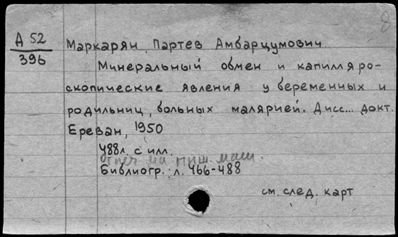 8
Д 52
396
Маркарян, Партев Амбарцумович
Минеральный обмен и капилляро-
скопические явления у беременных и
родильниц, больных малярией. Дисс... докт.
Ереван, 1950
488л. с илл.
Отпеч. на пиш. маш.
Библиогр.: л. 466-488
см. след. карт